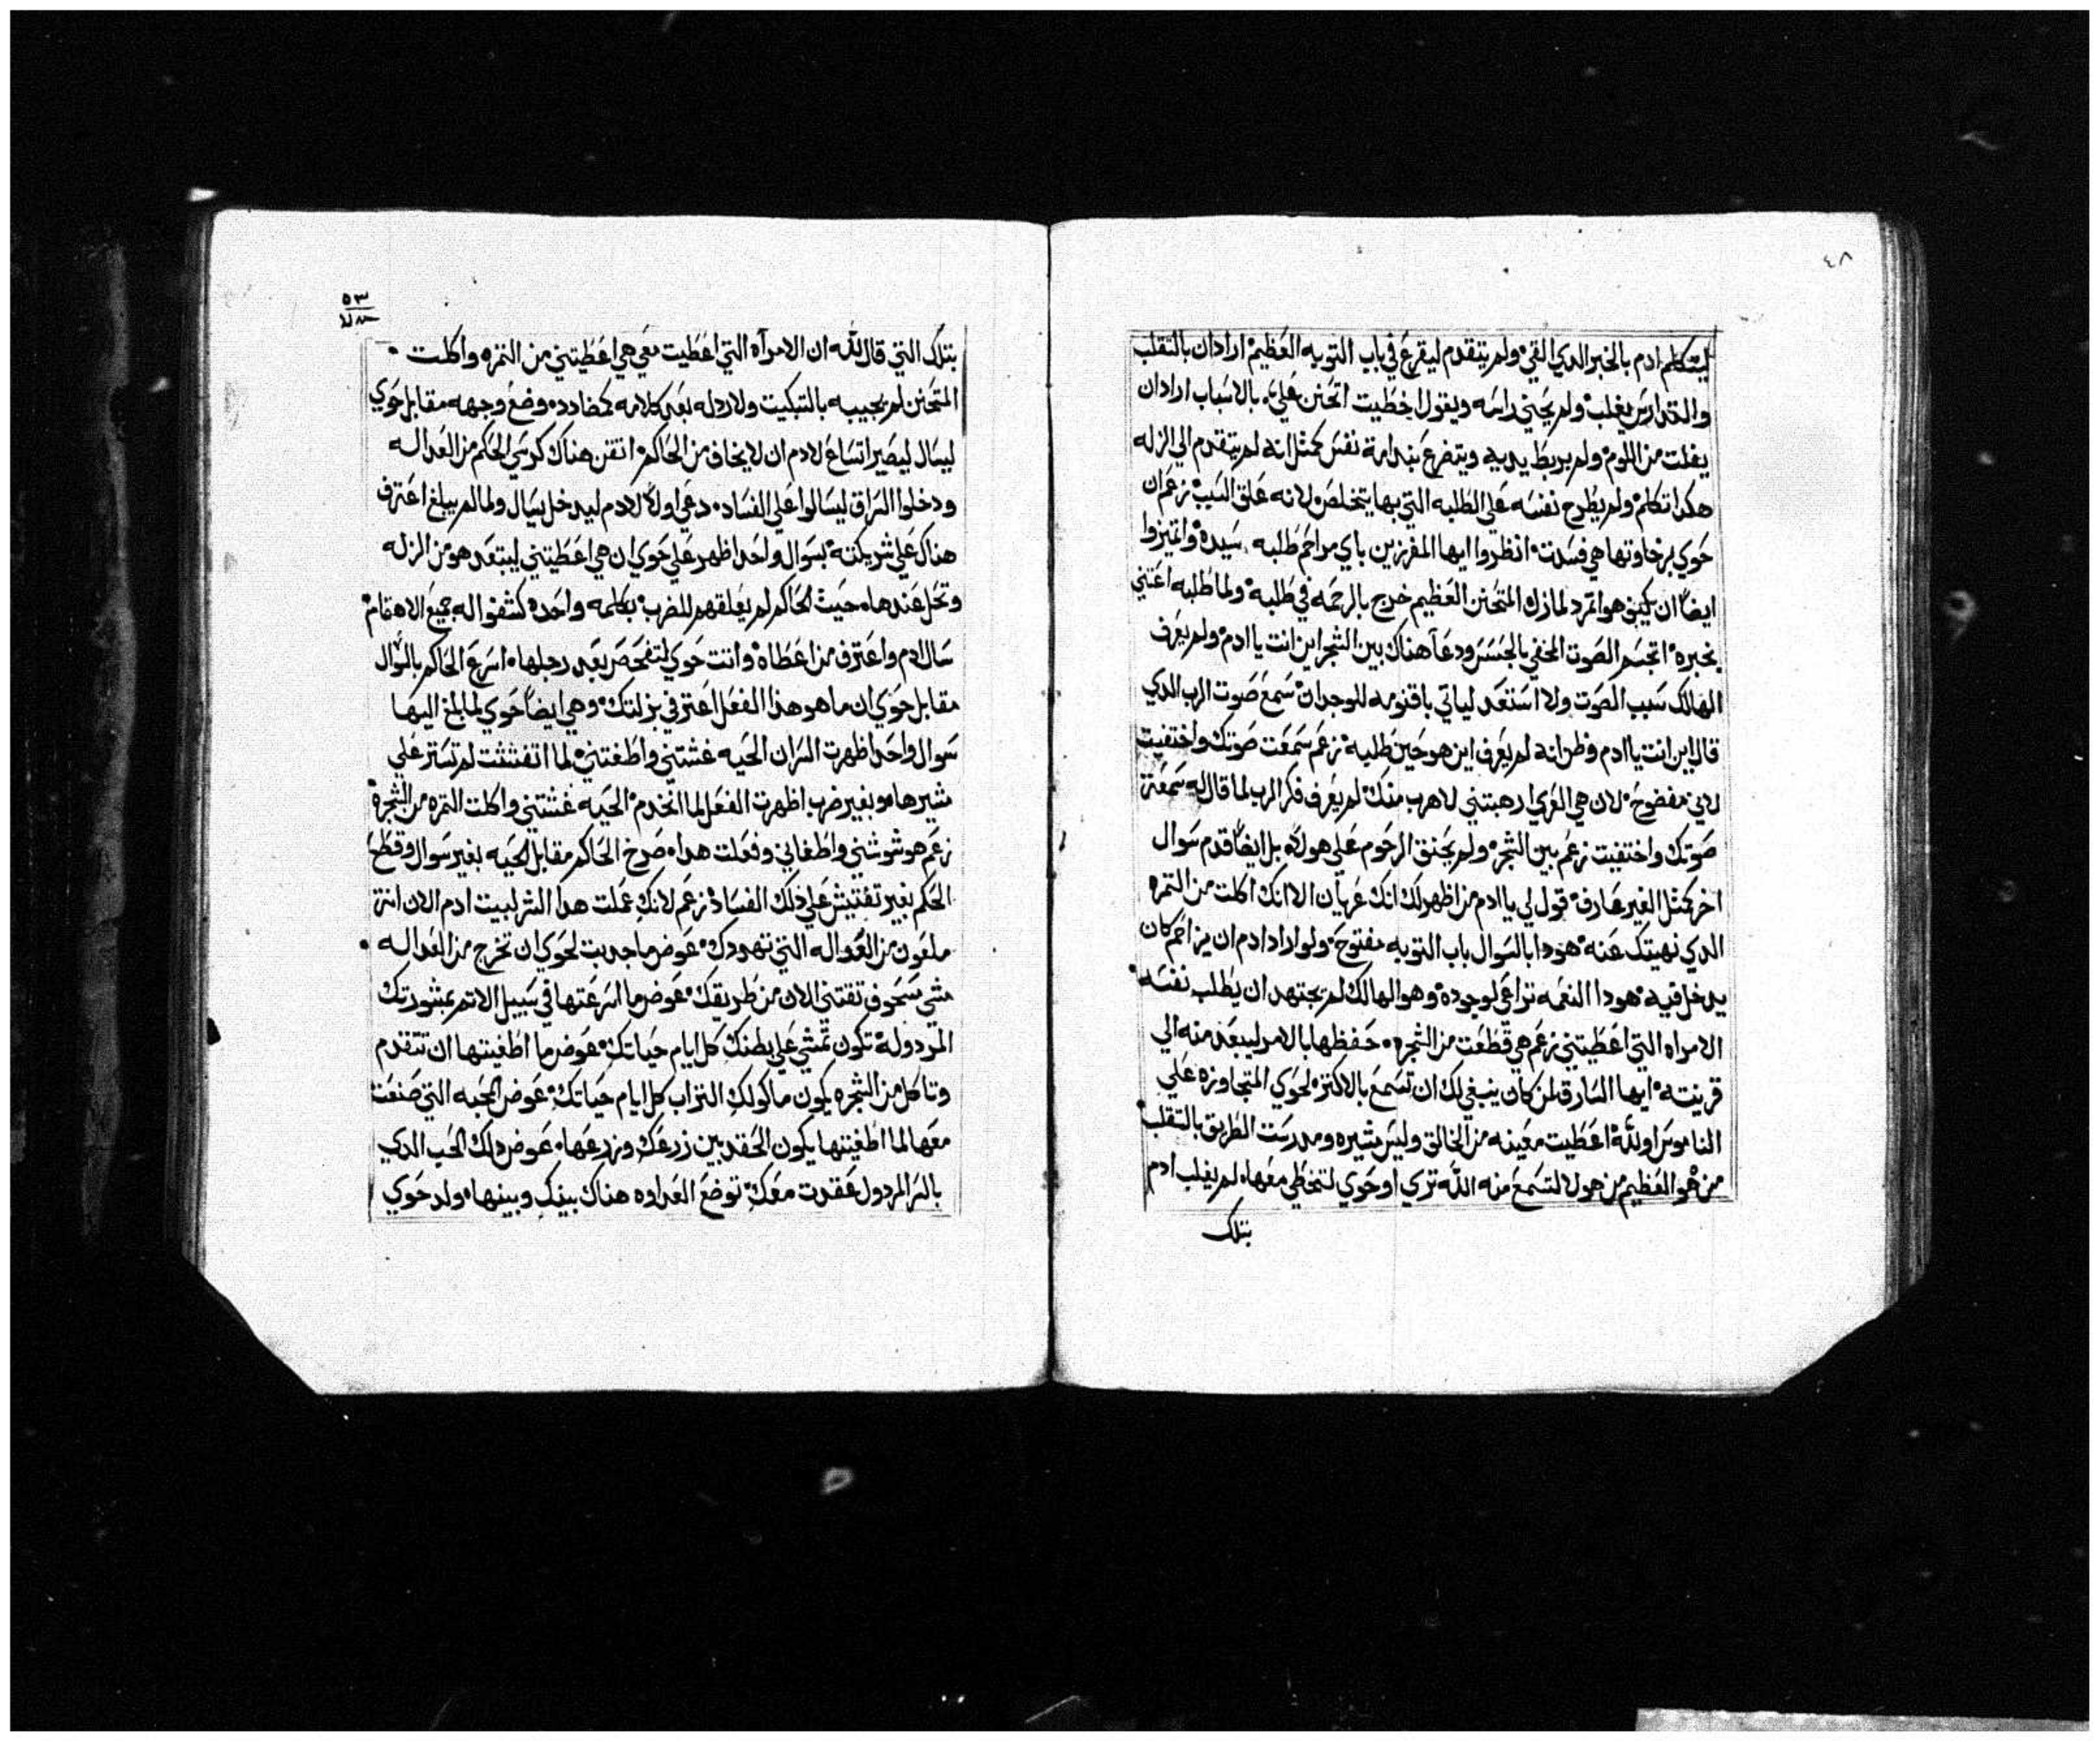 ٤٨
ليتكلم ادم بالخبر الدي القي ولم يتقدم ليقرع في باب التوبه العظيم اراد ان بالتقلب
والتدارس يغلب ولم يحني راسه ويقول اخطيت اتحنن علي بالاسباب اراد ان
يفلت من اللوم ولم يربط يديه ويتضرع بندامة نفس كمثل انه لم يتقدم الي الزله
هكدا تكلم ولم يطرح نفسه علي الطلبه التي بها يتخلص لانه علق السبب زعم ان
حوي برخاوتها هي فسدت انظروا ايها المفرزين باي مراحم طلبه سيده واتميزوا
ايضاً ان كيف هو اتمرد لما زل المتحنن العظيم خرج بالرحمه في طلبه ولما طلبه اعتني
بخبره اتجسم الصوت الخفي بالجسس ودعا هناك بين الشجر اين انت يا ادم ولم يعرف
الهالك سبب الصوت ولا استعد لياتي باقنومه للوجدان سمع صوت الرب الدي
قال اين انت يا ادم وظن انه لم يعرف اين هو حين طلبه زعم سمعت صوتك واختفيت
لاني مفضوح لان هي العري ارهبتني لاهرب منك لم يعرف فكر الرب لما قال له سمعت
صوتك واختفيت زعم بين الشجر ولم يحنق الرحوم علي هولاء بل ايضاً قدم سوال
اخر كمثل الغير عارف قول لي يا ادم من اظهر لك انك عريان الا انك اكلت من التمره
الدي نهيتك عنه هودا بالسوال باب التوبه مفتوح ولو اراد ادم ان يزاحم كان
يدخل فيه هودا النعمه تراعي لوجوده وهو الهالك لم يجتهد ان يطلب نفسه
الامراه التي اعطيتني زعم هي قطعت من الشجره حفظها بالامر ليبعد منه الي
قرينته ايها السارق لمن كان ينبغي لك ان تسمع بالاكتر لحوي المتجاوزه علي
الناموس او لله اعطيت معينه من الخالق وليس مشيره ومدرست الطريق بالتقلب
من هو العظيم من هولا لتسمع منه الله تري او حوي لتخطي معها لم يغلب ادم
بتلك
٥٣
بتلك التي قال لله ان الامرآه التي اعطيت معي هي اعطيتني من التمره واكلت
المتحنن لم يجيبه بالتبكيت ولا ردله بعد كلامه كمضادده وضع وجهه مقابل حوي
ليسال ليصير اتساع لادم ان لا يخاف من الحاكم اتقن هناك كرسي الحكم من العداله
ودخلوا السراق ليسالوا علي الفساد دعي اولاً لادم ليدخل يسال ولما لم يبلغ اعترف
هناك علي شريكته بسوال واحد اظهر علي حوي ان هي اعطيتني ليبتعد هو من الزله
وتحل عندها حيث الحاكم لم يعلقهم للضرب بكلمه واحده كشفوا له جميع الاهتمام
سال لادم واعترف من اعطاه واتت حوي لتفحص بعد رجلها اسرع الحاكم بالسوال
مقابل حوي ان ما هو هذا الفعل اعترفي بزلتك وهي ايضاً حوي لما بلغ اليها
سوال واحد اظهرت السر ان الحيه غشتني واطغتني لما اتفتشت لم تستر علي
مشيرها وبغير ضرب اظهرت الفعل لما انخدم الحيه غشتني واكلت التمره من الشجرة
زعم هو شوشني واطغاني وفعلت هدا صرخ الحاكم مقابل الحيه بغير سوال وقطع
الحكم بغير تفتيش علي ذلك الفساد زعم لانك عملت هدا الشر لبيت ادم الان انتز
ملعون من العداله التي تهددك عوض ما جدبت لحوي ان تخرج من العداله
مشي سحوف تقتني الان من طريقك عوض ما اسرعتها في سبيل الاتم بمشورتك
المردوله تكون تمشي علي بطنك كل ايام حياتك عوض ما اطغيتها ان تتقدم
وتاكل من الشجره يكون ماكولك التراب كل ايام حياتك عوض الحبه التي صنعت
معها لما اطغيتها يكون الحقد بين زرعك وزرعها عوض دلك الحب الدي
بالسر المردول عقدت معك توضع العداوه هناك بينك وبينها ولد حوي